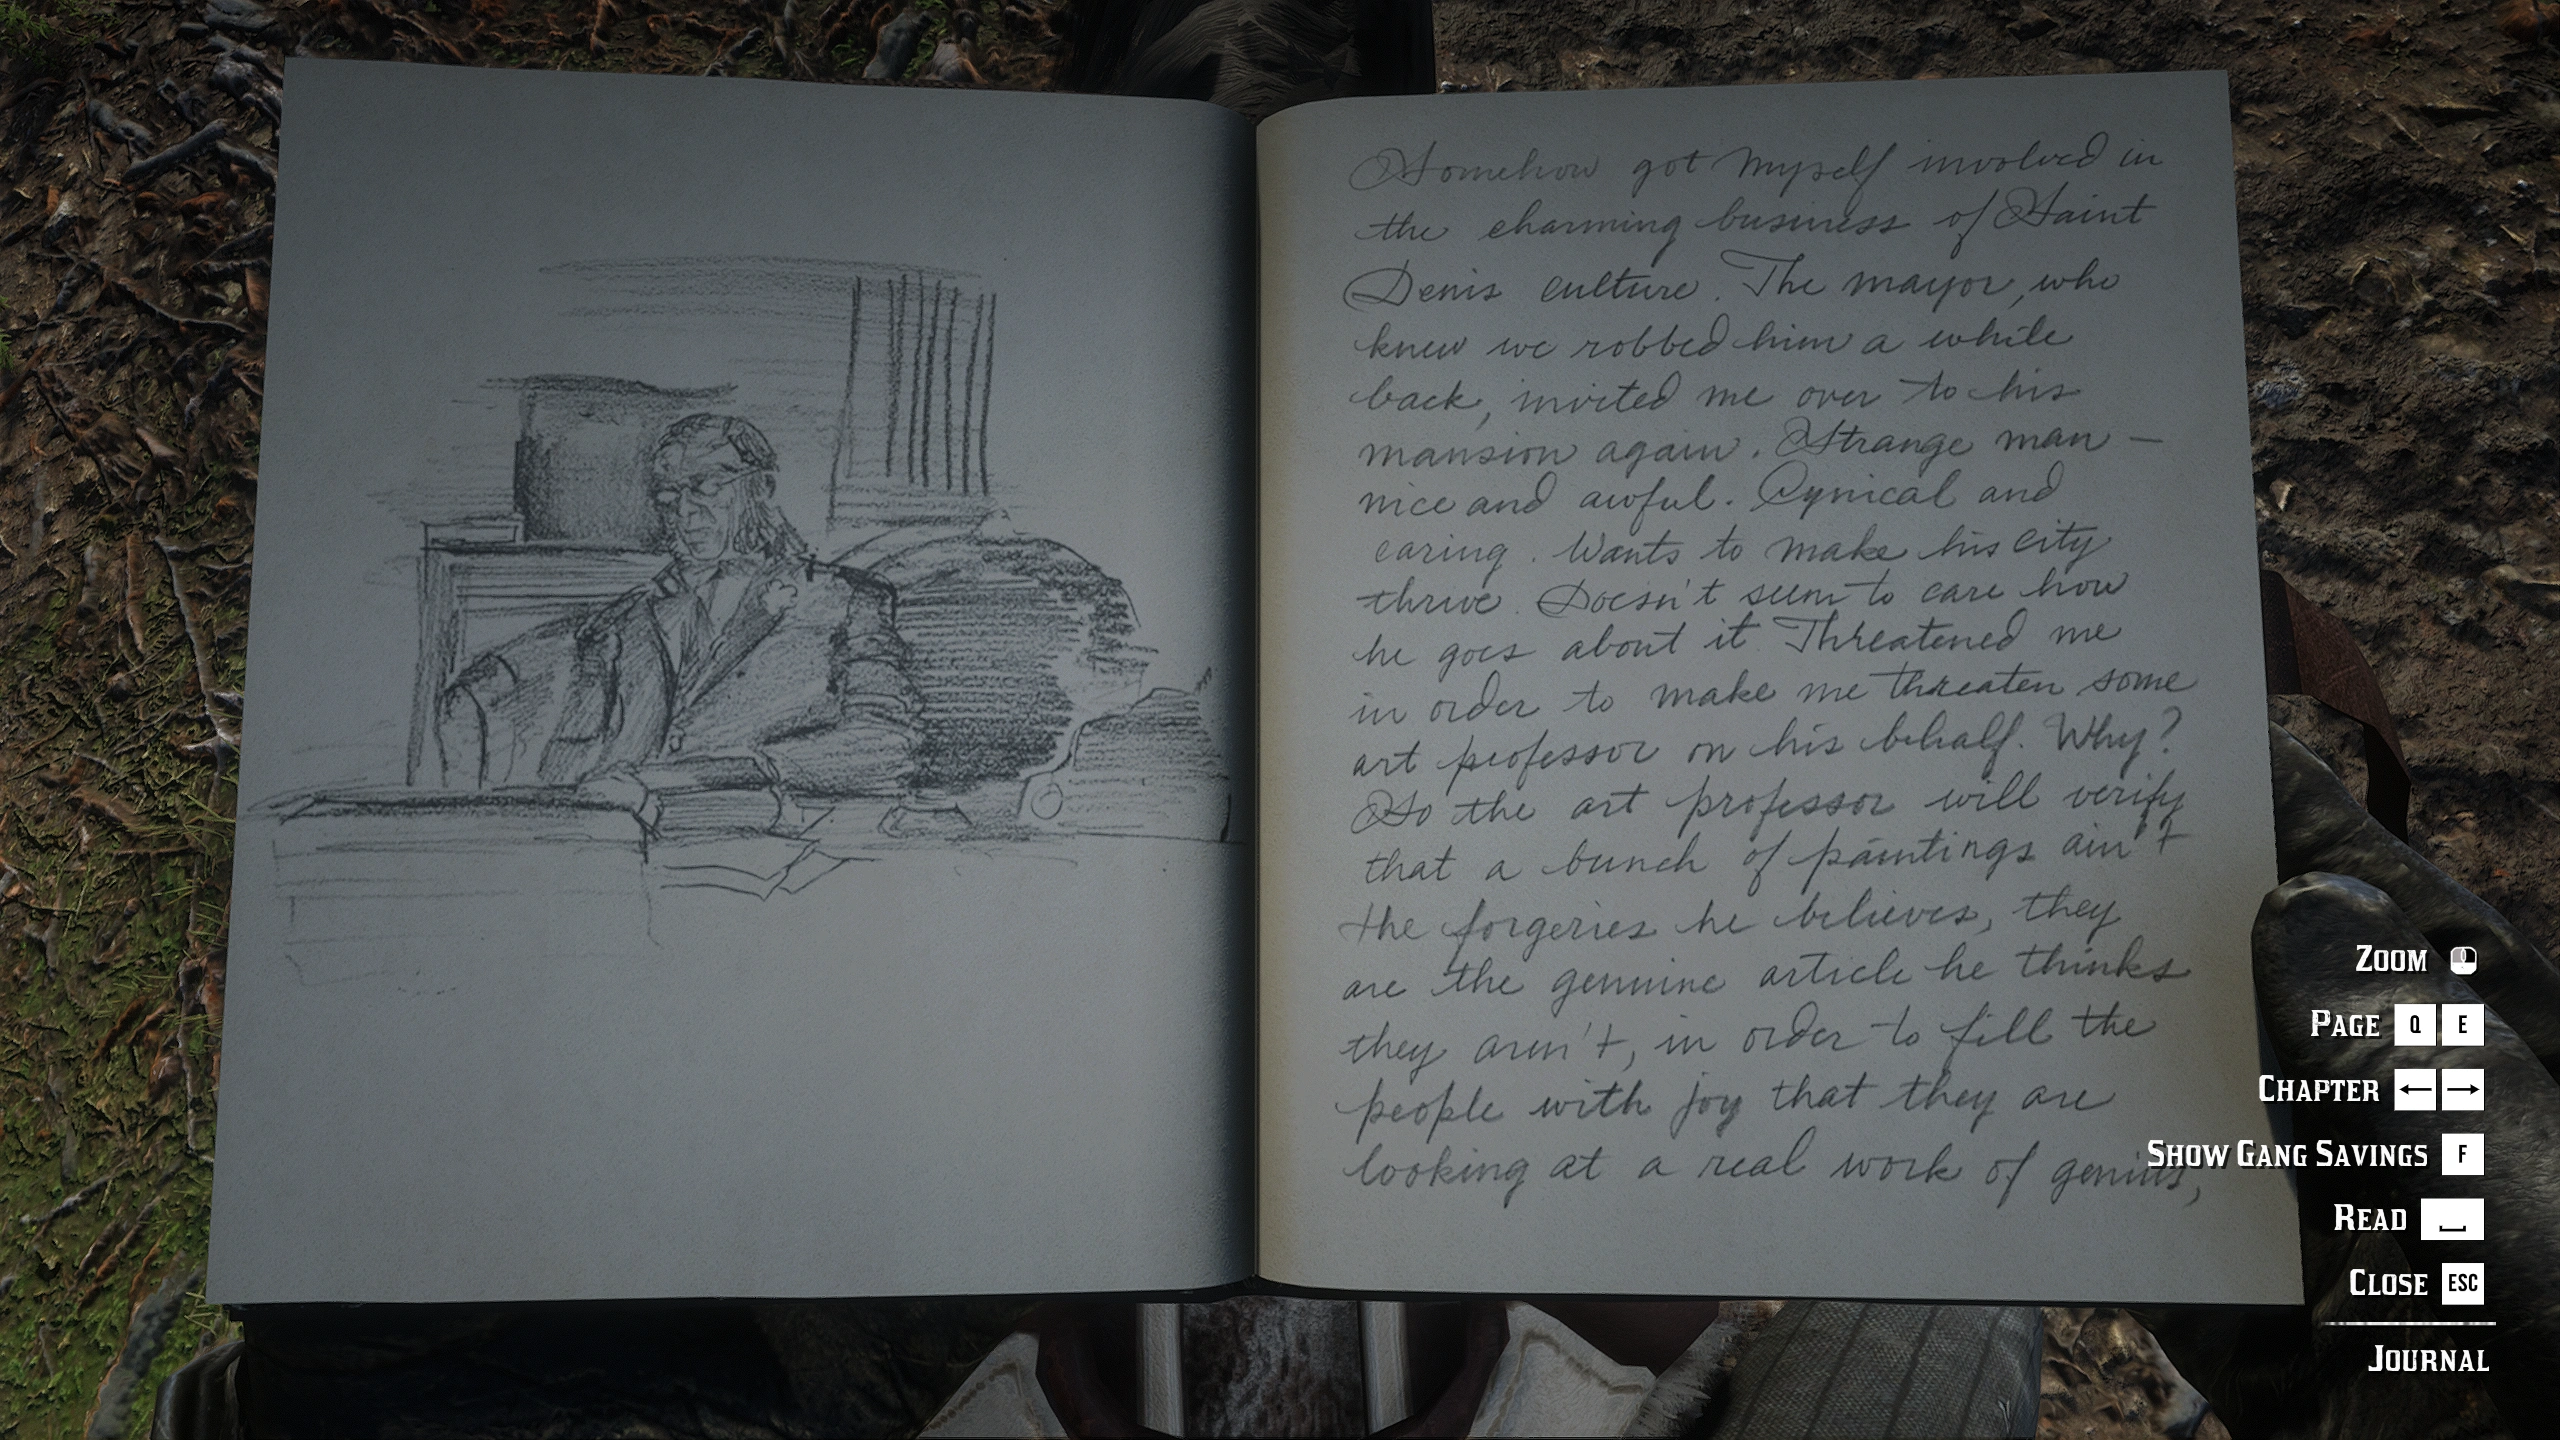 Somehow got myself involved in
the charming business of Saint
Denis culture. The mayor, who
knew we robbed him a while
back, invited me over to his
mansion again. Strange man —
nice and awful. Cynical and
caring. Wants to make his city
thrive. Doesn't seem to care how
he goes about it. Threatened me
in order to make me threaten some
art professor on his behalf. Why?
So the art professor will verify
that a bunch of paintings ain't
the forgeries he believes, they
are the genuine article he thinks
they aren't, in order to fill the
people with joy that they are
looking at a real work of genius,
ZOOM
PAGE Q E
CHAPTER ← →
SHOW GANG SAVINGS F
READ
CLOSE ESC
JOURNAL